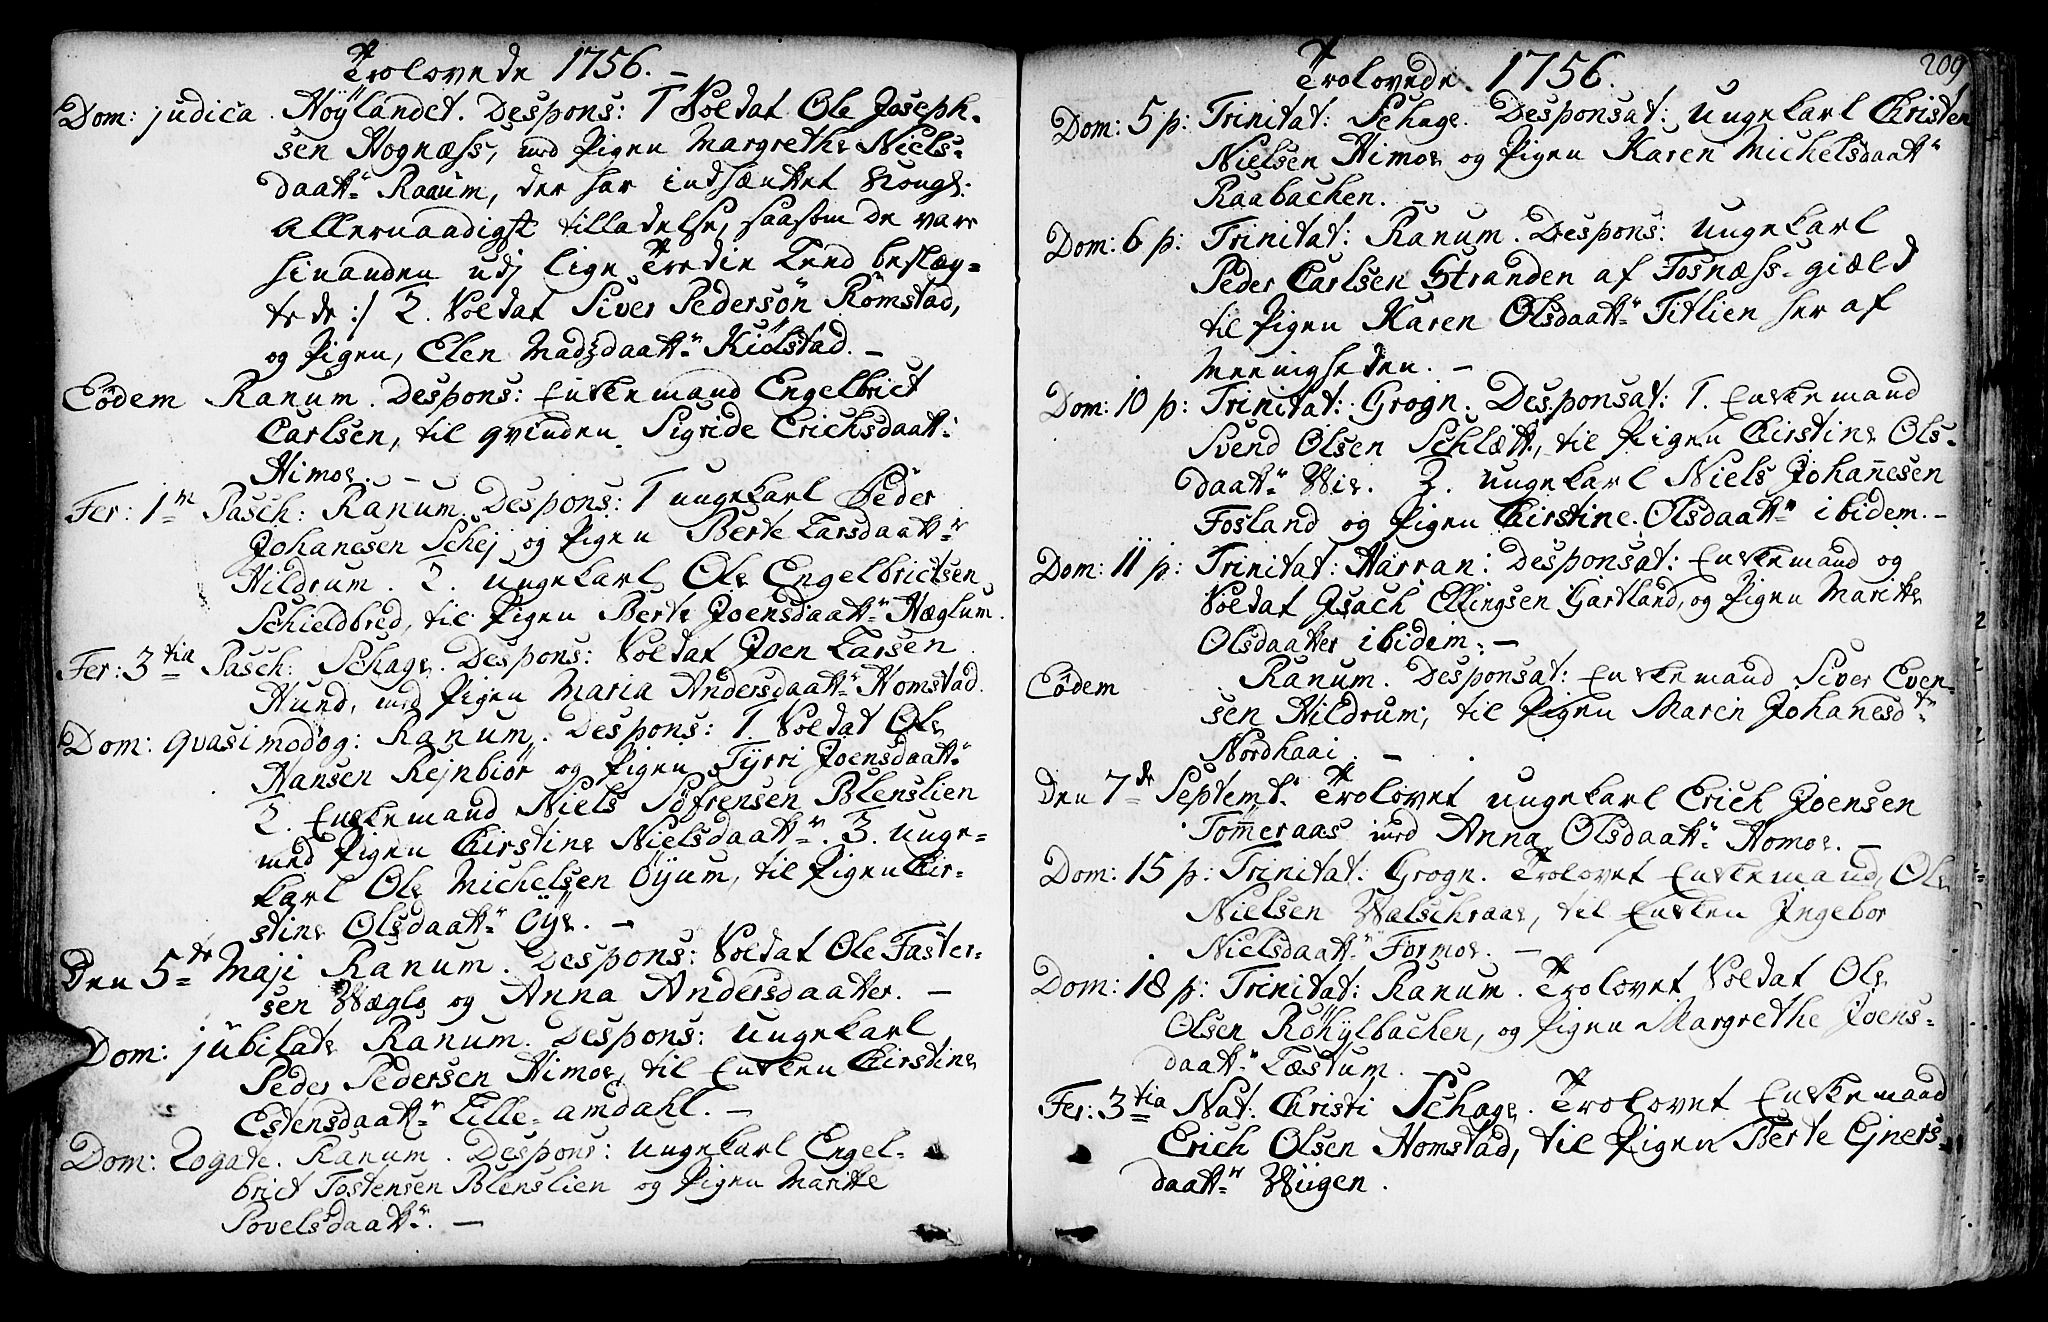 Trolovede 1756. –
Dom: judica. Høÿlandet. Despons: 1 Soldat Ole Joseph-
sen Hognæss, med Pigen Margrethe Niels-
daattr Raaum, der har indhæntet Kongl:
Allernaadigst tilladelse, saasom de vare
hinanden udj lige Tredie Leed beslæg-
tede :/ 2. Soldat Siver Pedersøn Römstad,
og Pigen, Elen Madsdaattr Kiölstad. –
Eodem Ranum. Despons: Enkemand Engelbrict
Carlsen, til qvinden Sigride Erichsdaattr
Himoe. –
Fer: 1m Pasch: Ranum. Despons: 1 ungekarl Peder
Johanesen Schej og Pigen Berte Larsdaattr
Hildrum. 2. ungekarl Ole Engelbrictsen
Schieldbred, til Pigen Berte Joensdaattr Hæglum.
Fer: 3tia Pasch: Schage. Despons: Soldat Joen Larsen
Hund, med Pigen Maria Andersdaattr Homstad.
Dom: qvasimodog: Ranum. Despons: 1. Soldat Ole
Hansen Rejnbiör og Pigen Tÿrri Joensdaattr
2. Enkemand Niels Söfrensen Blenslien
med Pigen Kirstine Nielsdaattr. 3. unge-
karl Ole Michelsen Öÿum, til Pigen Kir-
stine Olsdaattr Öÿe. –
Den 5te Maji Ranum. Despons: Soldat Ole Faster-
sen Wægle og Anna Andersdaatter. –
Dom: jubilate Ranum. Despons: Ungekarl
Peder Pedersen Himoe, til Enken Kirstine
Estensdaattr Lille-amdahl. –
Dom: Rogate. Ranum. Despons: ungekarl Engel-
brict Tostensen Blenslien og Pigen Maritte
Povelsdaattr. –
209
Trolovede 1756.
Dom: 5 p: Trinitat: Schage. Desponsat: Ungekarl Christen
Nielsen Himoe og Pigen Karen Michelsdaattr
Raabachen. –
Dom: 6 p: Trinitat: Ranum. Despons: Ungekarl
Peder Carlsen Stranden af Fosnæss-giæld
til Pigen Karen Olsdaattr Titlien her af
Meenigheden. –
Dom: 10 p: Trinitat: Grogn. Desponsat: 1. Enkemand
Svend Olsen Schlætt, til Pigen Kirstine Ols-
daattr Wie. 2. ungekarl Niels Johannesen
Fosland og Pigen Kirstine Olsdaattr ibidem. –
Dom: 11 p: Trinitat: Harran: Desponsat: Enkemand og
Soldat Jsach Ellingsen Gartland, og Pigen Maritte
Olsdaatter ibidem. –
Eodem Ranum. Desponsat: Enkemand Siver Even-
sen Hildrum, til Pigen Maren Johanesdtr
Nordhaai. –
Den 7de Septembr Trolovet ungekarl Erich Joensen
Tommeraas med Anna Olsdaattr Homoe. –
Dom: 15 p: Trinitat: Grogn. Trolovet Enkemand, Ole
Nielsen Walschraae, til Enken Jngebor
Nielsdaattr Formoe. –
Dom: 18 p: Trinitat: Ranum. Trolovet Soldat Ole
Olsen Röhÿlbachen, og Pigen Margrethe Joens-
daattr Læstum. –
Fer: 3tia Nat. Christi Schage. Trolovet Enkemand
Erich Olsen Homstad, til Pigen Berte Ejners-
daattr Wiigen.